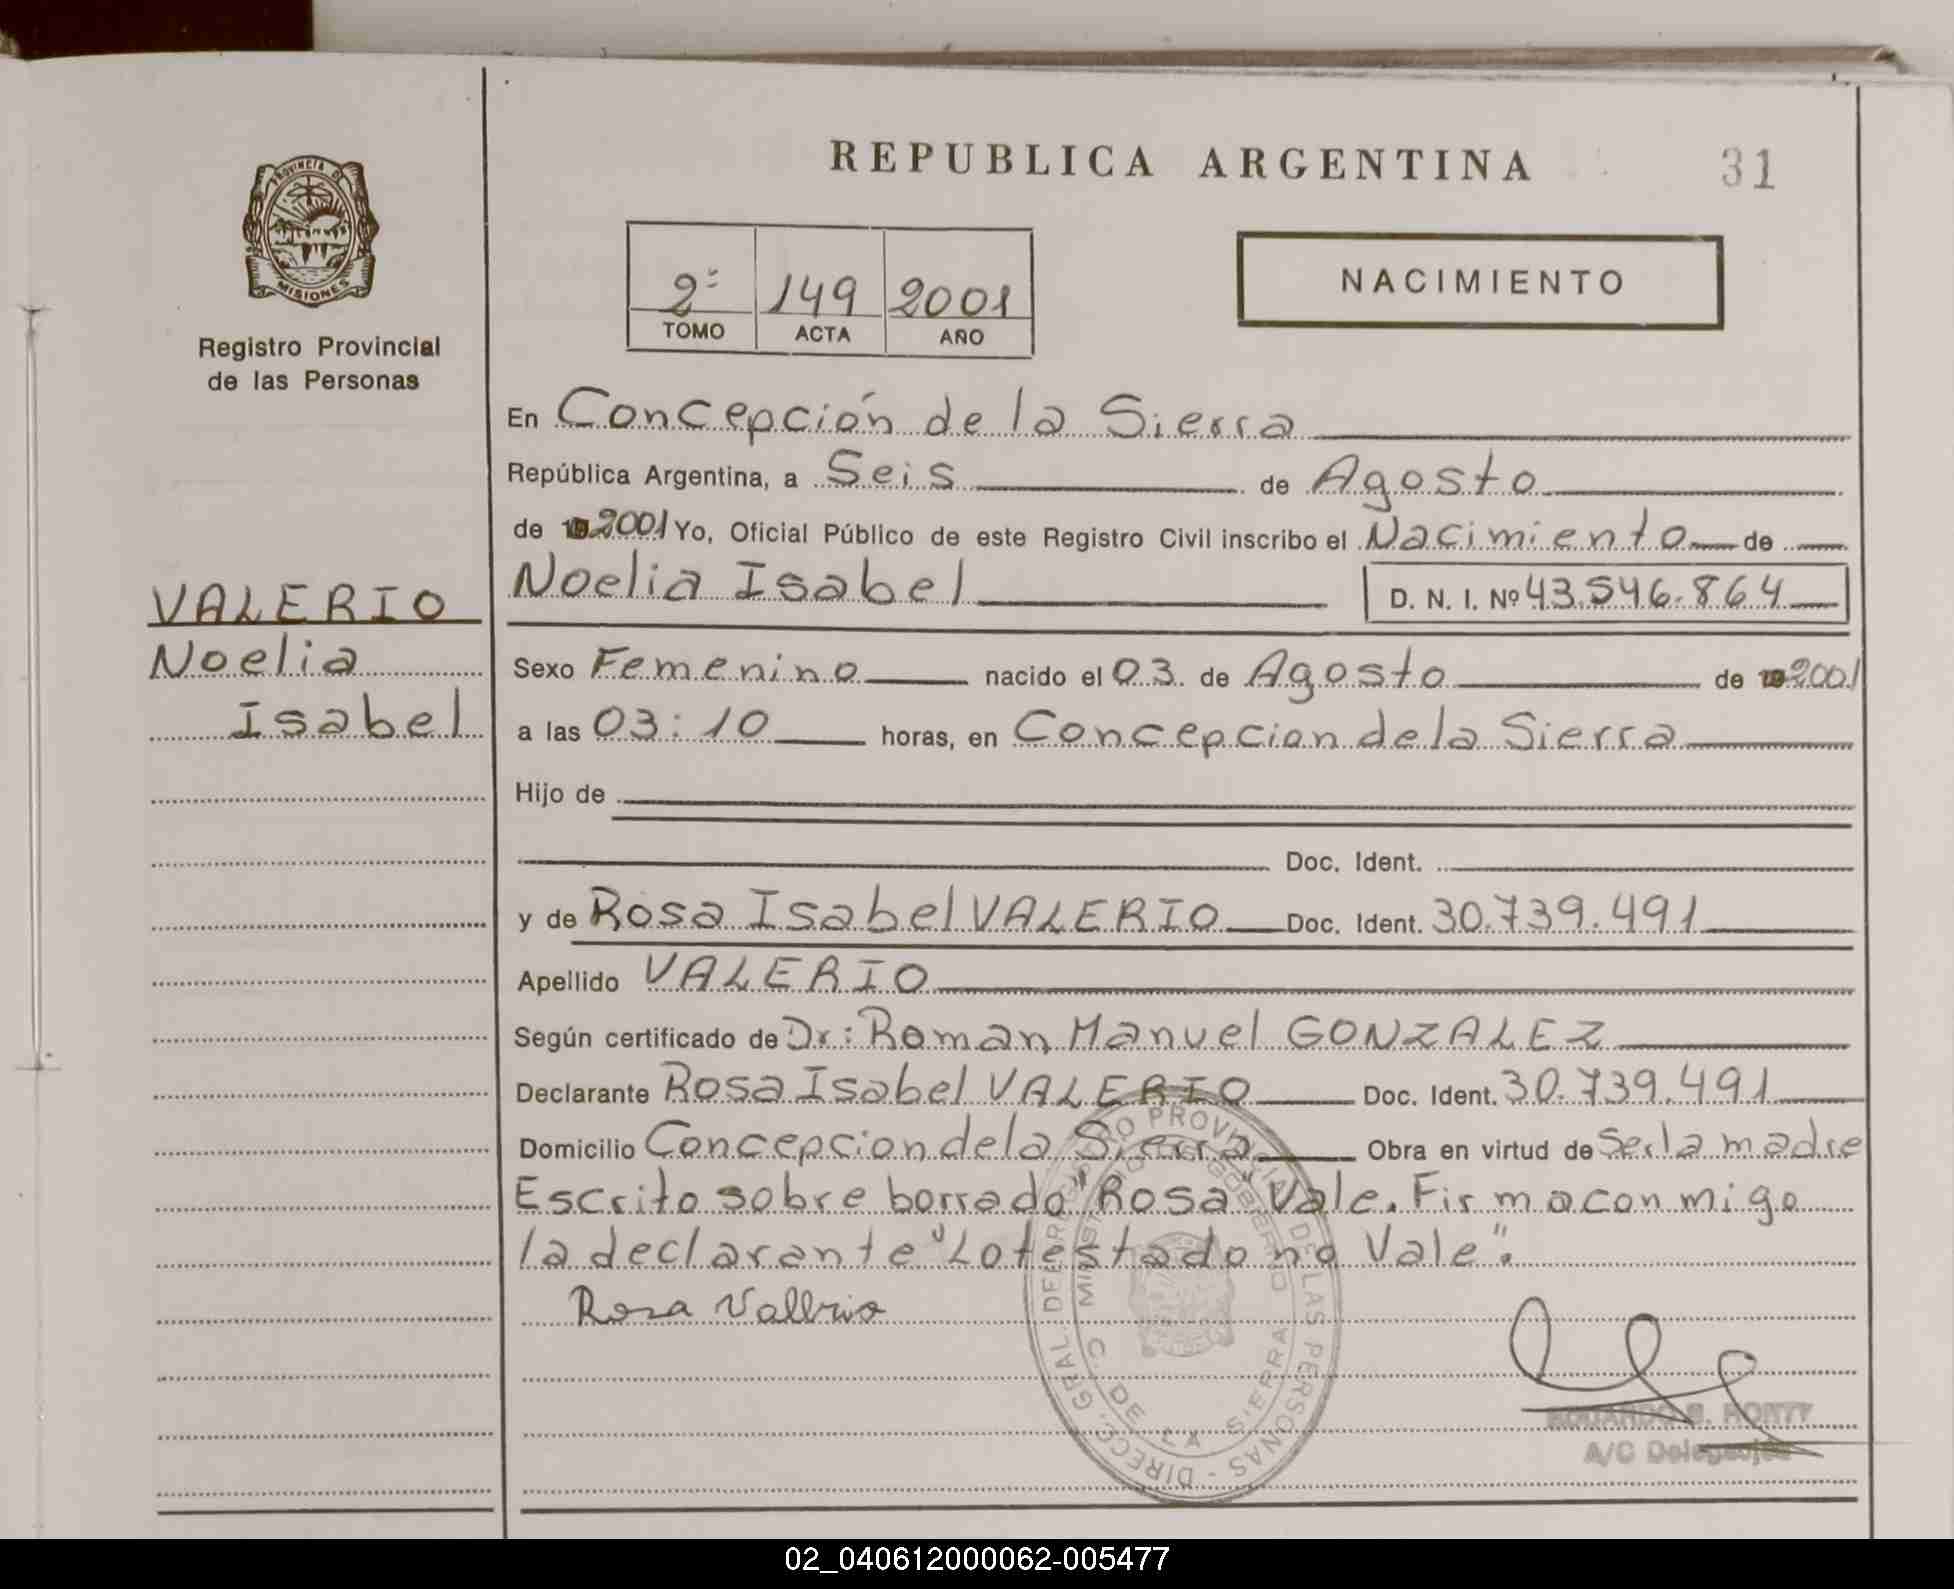 REPUBLICA ARGENTINA
31
PROVINCIA DE
MISIONES
Registro Provincial
de las Personas
2º 149 2001
TOMO ACTA AÑO
NACIMIENTO
VALERIO
Noelia
Isabel
En Concepción de la Sierra
República Argentina, a Seis de Agosto
de 19 2001 Yo, Oficial Público de este Registro Civil inscribo el Nacimiento de
Noelia Isabel D. N. I. Nº 43.546.864
Sexo Femenino nacido el 03 de Agosto de 19 2001
a las 03:10 horas, en Concepcion de la Sierra
Hijo de
Doc. Ident.
y de Rosa Isabel VALERIO Doc. Ident. 30.739.491
Apellido VALERIO
Según certificado de Dr: Roman Manuel GONZALEZ
Declarante Rosa Isabel VALERIO Doc. Ident. 30.739.491
Domicilio Concepcion de la Sierra Obra en virtud de Ser la madre
Escrito sobre borrado "Rosa" Vale. Firma con migo
la declarante "Lo testado no Vale".
Rosa Vallrio
DIRECC. GRAL. DEL REGISTRO PROVINCIAL DE LAS PERSONAS
MINISTERIO DE GOBIERNO
C. DE LA SIERRA
EDUARDO S. RORTY
A/C Delegación
02_040612000062-005477